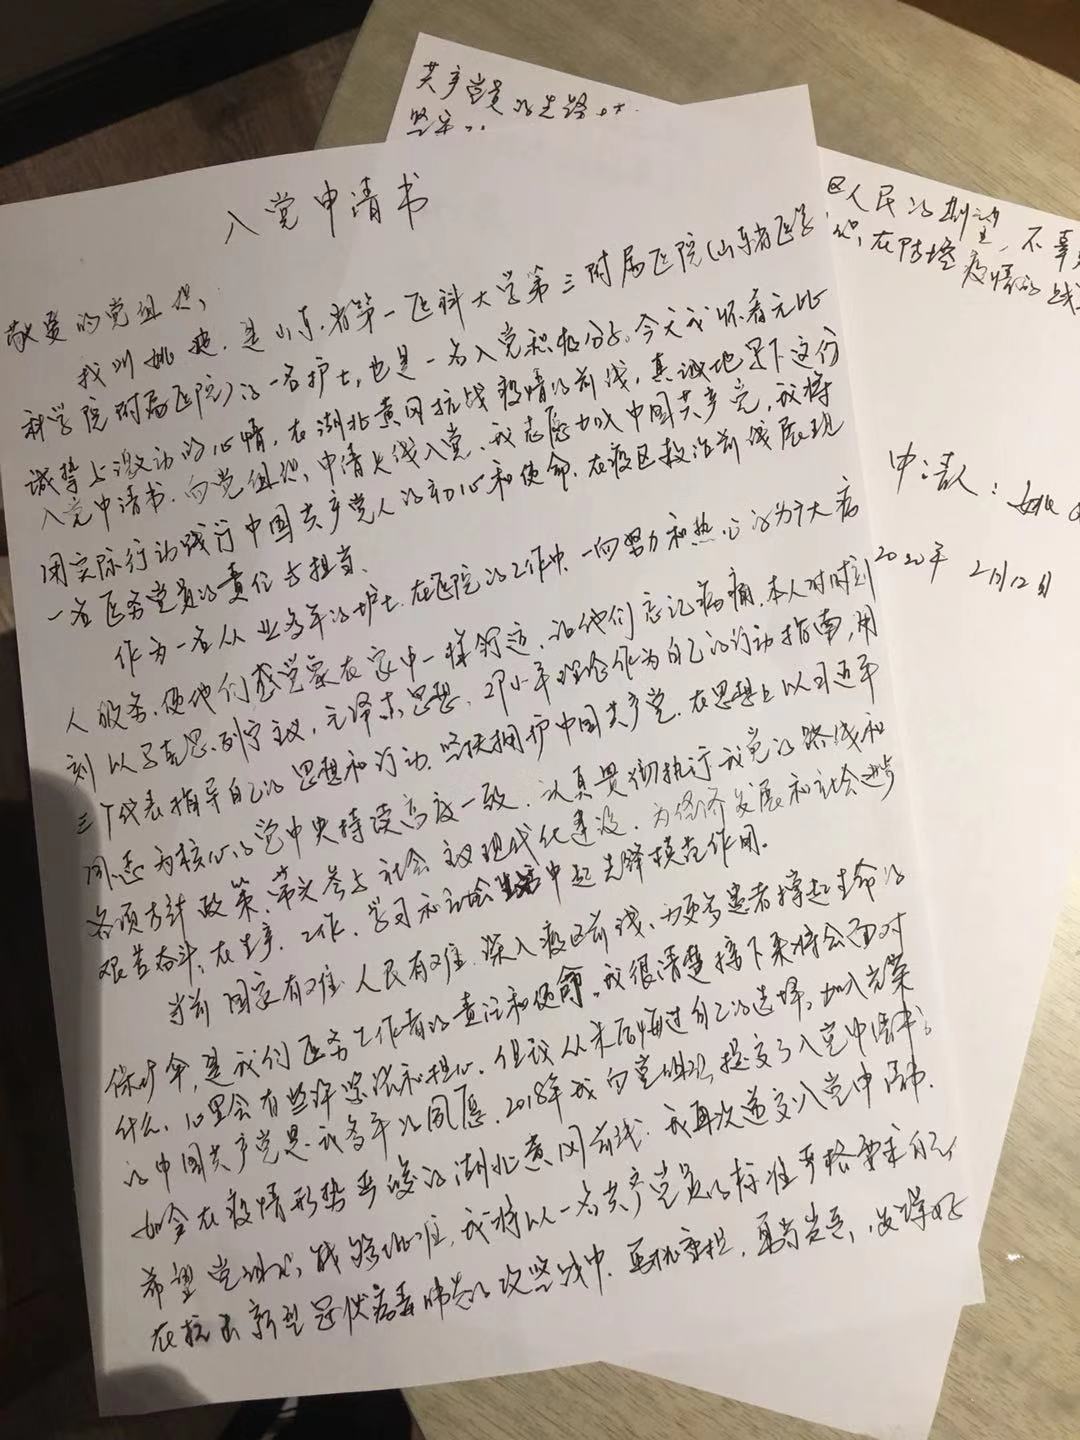 入党申请书
敬爱的党组织，
我叫姚 ，是山东省第一医科大学第三附属医院（山东省医学
科学院附属医院）的一名护士，也是一名入党积极分子。今天我怀着无比
诚挚与激动的心情，在湖北黄冈抗战疫情的前线，真诚地呈下这份
入党申请书，向党组织，申请火线入党，我志愿加入中国共产党，我将
用实际行动践行中国共产党人的初心和使命，在疫区救治前线展现
一名医务党员的责任与担当。
作为一名从业多年的护士，在医院的工作中，一向努力和热心的为广大病
人服务，使他们感觉象在家中一样舒适，让他们忘记病痛，本人时时刻
刻以马克思、列宁主义，毛泽东思想，邓小平理论作为自己的行动指南，用
三个代表指导自己的思想和行动，坚决拥护中国共产党，在思想上以习近平
同志为核心的党中央持续高度一致，认真贯彻执行我党的路线和
各项方针政策，带头参与社会主义现代化建设，为经济发展和社会进步
艰苦奋斗，在生产，工作，学习和社会生活中起先锋模范作用。
当前国家有难，人民有难，深入疫区前线，为更多患者撑起生命的
保护伞，是我们医务工作者的责任和使命。我很清楚接下来将会面对
什么，心里会有些许紧张和担心，但我从未后悔过自己的选择，加入光荣
的中国共产党是我多年的夙愿，2018年我向党组织，提交了入党申请书；
如今在疫情形势严峻的湖北黄冈前线，我再次递交入党申请书，
希望党组织，能够批准，我将以一名共产党员的标准严格要求自己，
在抗击新型冠状病毒肺炎的攻坚战中，勇挑重担，勇 ，发挥好
共产党员的先锋
坚
区人民的期望，不辜
织，在防控疫情的战
申请人：姚
2020年2月12日